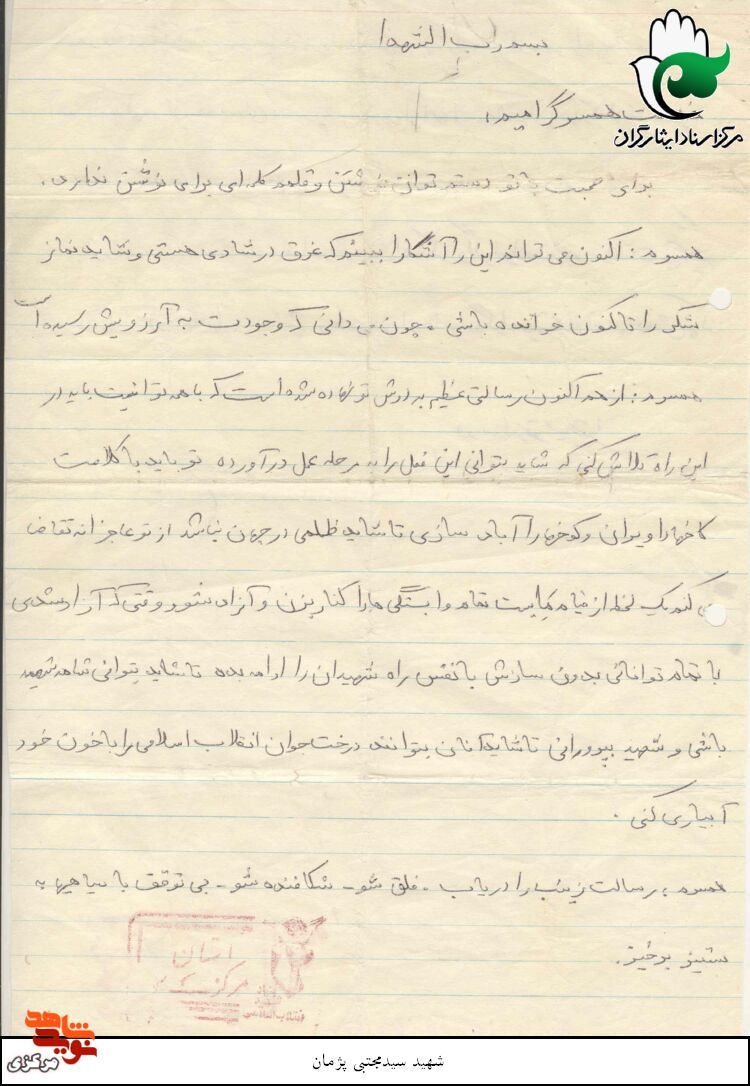 بسم رب الشهدا
همسر گرامیم،
مرکز اسناد ایثارگران
برای صحبت با تو دستم توان نوشتن و قلمم کلمه ای برای نوشتن ندارد.
همسرم: اکنون می توانم این را آشکارا ببینم که غرق در شادی هستی و شاید نماز
شکر را تا کنون خوانده باشی. چون می دانی که وجودت به آرزویش رسیده است
همسرم: از هم اکنون رسالتی عظیم بر دوش تو نهاده شده است که با همه توانیت باید در
این راه تلاش کنی که شاید بتوانی این را به مرحله عمل درآورده تو باید با کلامت
کاخها را ویران و کوخها را آباد سازی تا شاید ظلمی در جهان نباشد از تو عاجزانه تقاضا
می کنم یک لحظه از تمام وابستگی ها را کنار بزن و آزاد شو و وقتی که آزاد شدی
با تمام توانائی بدون سازش با نفس راه شهیدان را ادامه بده تا شاید بتوانی شاهد شهید
باشی و شهید بپرورانی تا شاید آنان بتوانند درخت جوان انقلاب اسلامی را با خون خود
آبیاری کنی.
همسرم: رسالت زینب را دریاب. فلق شو - شکافنده شو - بی توقف با سیاهیها به
ستیز برخیز.
استان
مرکزی
بنیاد
شهید
انقلاب اسلامی
نوید شاهد
مرکزی
شهید سیدمجتبی پژمان